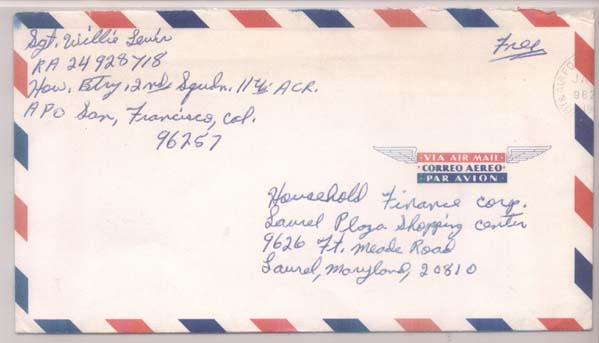 Sgt. Willie Lewis
RA 24928718
How. Btry. 2nd Squdn. 11th ACR.
APO San, Francisco, Cal.
96257
Free
VIA AIR MAIL
CORREO AEREO
PAR AVION
Household Finance Corp.
Laurel Plaza Shopping Center
9626 Ft. Meade Road
Laurel, Maryland, 20810